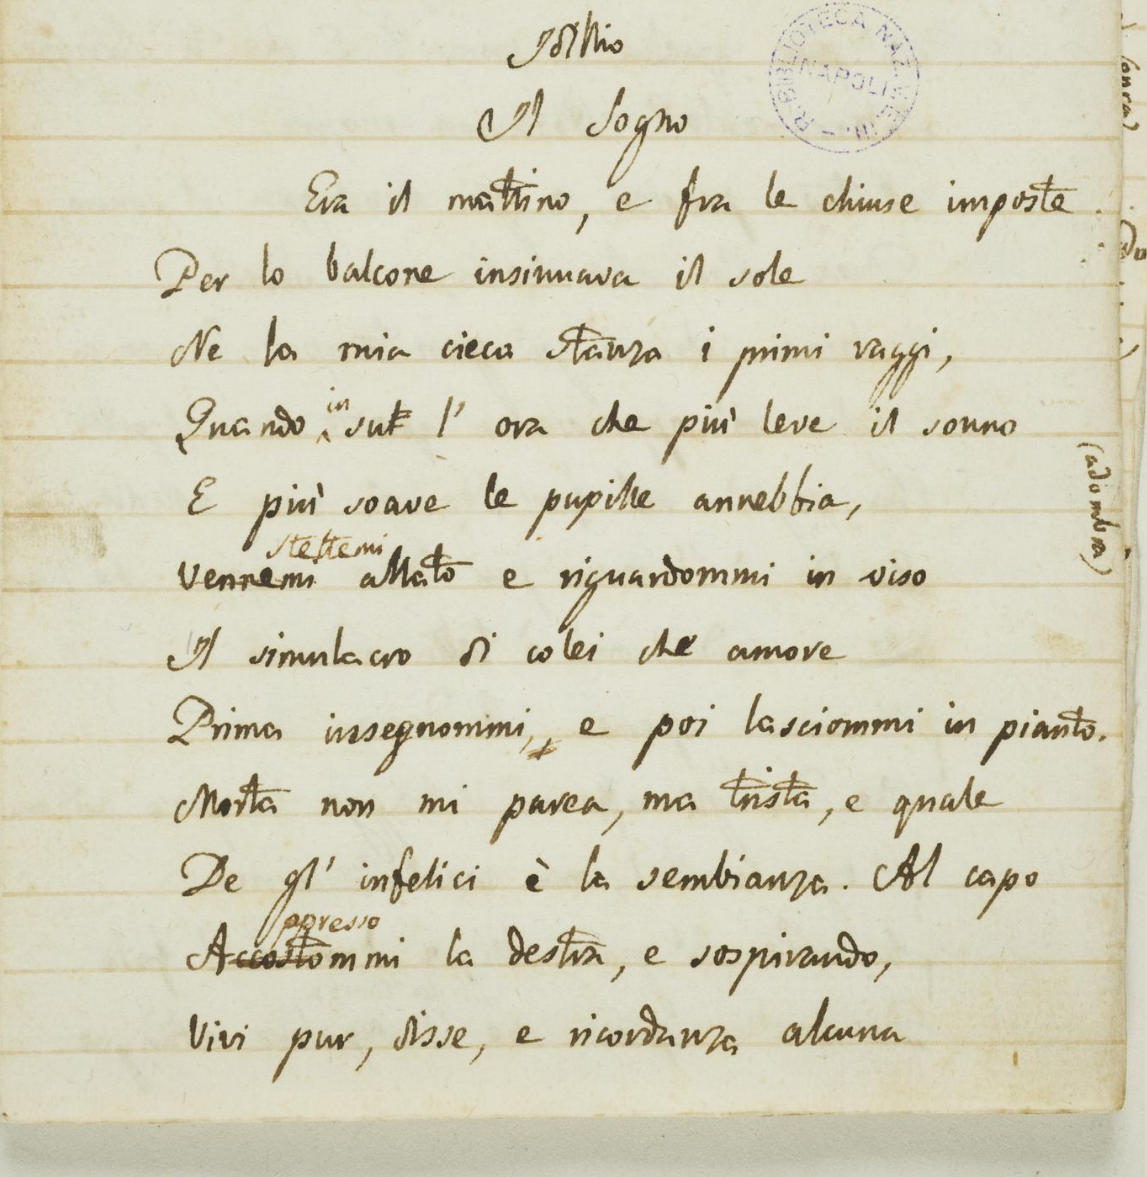 Idillio
R. BIBLIOTECA NAZ. V. E. III. - NAPOLI
Il Sogno
Era il mattino, e fra le chiuse imposte
Per lo balcone insinuava il sole
Ne la mia cieca stanza i primi raggi,
in
Quando sul l' ora che più leve il sonno
E più soave le pupille annebbia,
(adombra)
stettemi
Vennemi allato e riguardommi in viso
Il simulacro di colei che amore
Prima insegnommi, e poi lasciommi in pianto.
Morta non mi parea, ma trista, e quale
De gl' infelici è la sembianza. Al capo
ppresso
Accostommi la destra, e sospirando,
Vivi pur, disse, e ricordanza alcuna